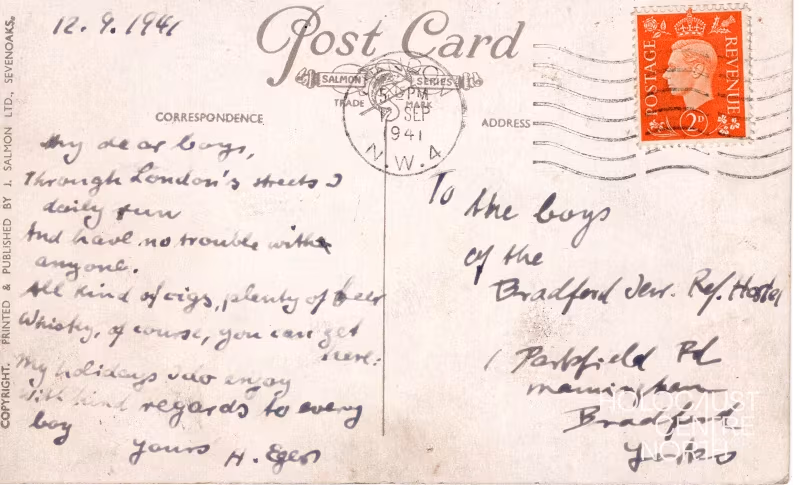 12.9.1941
Post Card
SALMON SERIES
TRADE MARK
CORRESPONDENCE
ADDRESS
My dear boys,
Through London's streets I
daily run
And have no trouble with
anyone.
All kind of cigs, plenty of beer
Whisky, of course, you can get
here:
My holidays I do enjoy
With kind regards to every
boy
Yours H. Eger
To the boys
of the
Bradford Jew. Ref. Hostel
1 Parkfield Rd
Manningham
Bradford
COPYRIGHT. PRINTED & PUBLISHED BY J. SALMON LTD., SEVENOAKS.
5 PM
12 SEP
1941
N.W.4
POSTAGE
REVENUE
2D
HOLOCAUST
CENTRE
NORTH